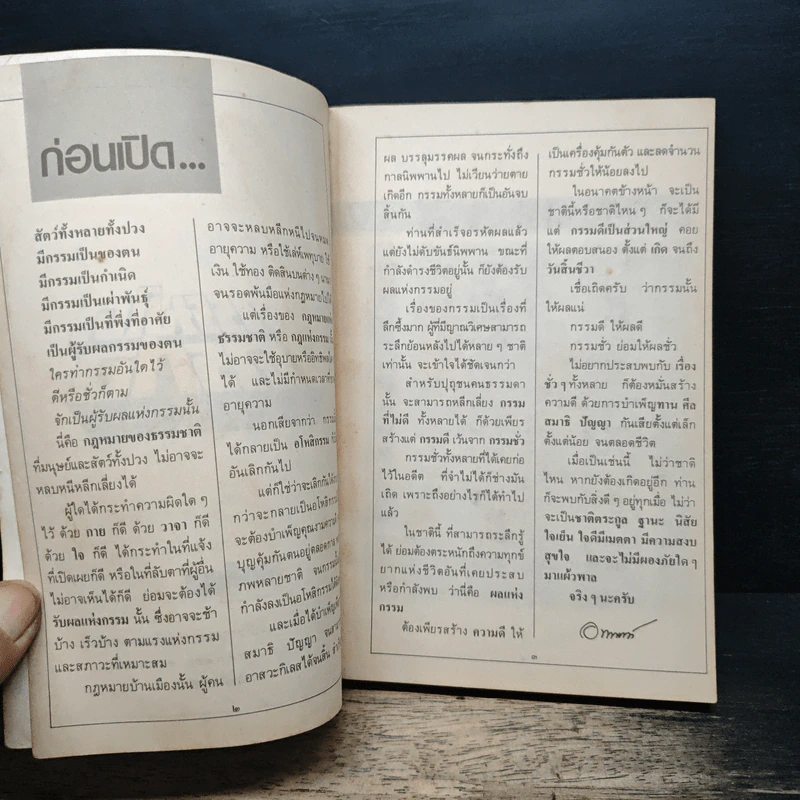 ก่อนเปิด...
สัตว์ทั้งหลายทั้งปวง
มีกรรมเป็นของตน
มีกรรมเป็นกำเนิด
มีกรรมเป็นเผ่าพันธุ์
มีกรรมเป็นที่พึ่งที่อาศัย
เป็นผู้รับผลกรรมของตน
ใครทำกรรมอันใดไว้
ดีหรือชั่วก็ตาม
จักเป็นผู้รับผลแห่งกรรมนั้น
นี่คือ กฎหมายของธรรมชาติ
ที่มนุษย์และสัตว์ทั้งปวง ไม่อาจจะ
หลบหนีหลีกเลี่ยงได้
ผู้ใดได้กระทำความผิดใด ๆ
ไว้ ด้วย กาย ก็ดี ด้วย วาจา ก็ดี
ด้วย ใจ ก็ดี ได้กระทำในที่แจ้ง
ที่เปิดเผยก็ดี หรือในที่ลับตาที่ผู้อื่น
ไม่อาจเห็นได้ก็ดี ย่อมจะต้องได้
รับผลแห่งกรรม นั้น ซึ่งอาจจะช้า
บ้าง เร็วบ้าง ตามแรงแห่งกรรม
และสภาวะที่เหมาะสม
กฎหมายบ้านเมืองนั้น ผู้คน
อาจจะหลบหลีกหนีไปจน
อายุความ หรือใช้เล่ห์เพทุบาย ใช้
เงิน ใช้ทอง ติดสินบนต่าง ๆ
จนรอดพ้นมือแห่งกฎหมายไปได้
แต่เรื่องของ กฎหมาย
ธรรมชาติ หรือ กฎแห่งกรรม
ไม่อาจจะใช้อุบายหรืออิทธิพล
ได้ และไม่มีกำหนดเวลาที่
อายุความ
นอกเสียจากว่า กรรม
ได้กลายเป็น อโหสิกรรม
อันเลิกกันไป
แต่ก็ใช่ว่าจะเลิกกันได้
กว่าจะกลายเป็นอโหสิกรรม
จะต้องบำเพ็ญคุณงามความดี
บุญคุ้มกันตนอยู่ตลอดกาล
ภพหลายชาติ จนกรรม
กำลังลงเป็นอโหสิกรรม
และเมื่อได้บำเพ็ญ
สมาธิ ปัญญา จน
อาสวะกิเลสได้จนสิ้น
๒
ผล บรรลุมรรคผล จนกระทั่งถึง
กาลนิพพานไป ไม่เวียนว่ายตาย
เกิดอีก กรรมทั้งหลายก็เป็นอันจบ
สิ้นกัน
ท่านที่สำเร็จอรหัตผลแล้ว
แต่ยังไม่ดับขันธ์นิพพาน ขณะที่
กำลังดำรงชีวิตอยู่นั้น ก็ยังต้องรับ
ผลแห่งกรรมอยู่
เรื่องของกรรมเป็นเรื่องที่
ลึกซึ้งมาก ผู้ที่มีญาณวิเศษสามารถ
ระลึกย้อนหลังไปได้หลาย ๆ ชาติ
เท่านั้น จะเข้าใจได้ชัดเจนกว่า
สำหรับปุถุชนคนธรรมดา
นั้น จะสามารถหลีกเลี่ยง กรรม
ที่ไม่ดี ทั้งหลายได้ ก็ด้วยเพียร
สร้างแต่ กรรมดี เว้นจาก กรรมชั่ว
กรรมชั่วทั้งหลายที่ได้เคยก่อ
ไว้ในอดีต ที่จำไม่ได้ก็ช่างมัน
เถิด เพราะถึงอย่างไรก็ได้ทำไป
แล้ว
ในชาตินี้ ที่สามารถระลึกรู้
ได้ ย่อมต้องตระหนักถึงความทุกข์
ยากแห่งชีวิตอันที่เคยประสบ
หรือกำลังพบ ว่านี่คือ ผลแห่ง
กรรม
ต้องเพียรสร้าง ความดี ให้
เป็นเครื่องคุ้มกันตัว และลดจำนวน
กรรมชั่วให้น้อยลงไป
ในอนาคตข้างหน้า จะเป็น
ชาตินี้หรือชาติไหน ๆ ก็จะได้มี
แต่ กรรมดีเป็นส่วนใหญ่ คอย
ให้ผลตอบสนอง ตั้งแต่ เกิด จนถึง
วันสิ้นชีวา
เชื่อเถิดครับ ว่ากรรมนั้น
ให้ผลแน่
กรรมดี ให้ผลดี
กรรมชั่ว ย่อมให้ผลชั่ว
ไม่อยากประสบพบกับ เรื่อง
ชั่ว ๆ ทั้งหลาย ก็ต้องหมั่นสร้าง
ความดี ด้วยการบำเพ็ญทาน ศีล
สมาธิ ปัญญา กันเสียตั้งแต่เล็ก
ตั้งแต่น้อย จนตลอดชีวิต
เมื่อเป็นเช่นนี้ ไม่ว่าชาติ
ไหน หากยังต้องเกิดอยู่อีก ท่าน
ก็จะพบกับสิ่งดี ๆ อยู่ทุกเมื่อ ไม่ว่า
จะเป็นชาติตระกูล ฐานะ นิสัย
ใจเย็น ใจดีมีเมตตา มีความสงบ
สุขใจ และจะไม่มีผองภัยใด ๆ
มาแผ้วพาล
จริง ๆ นะครับ
๓